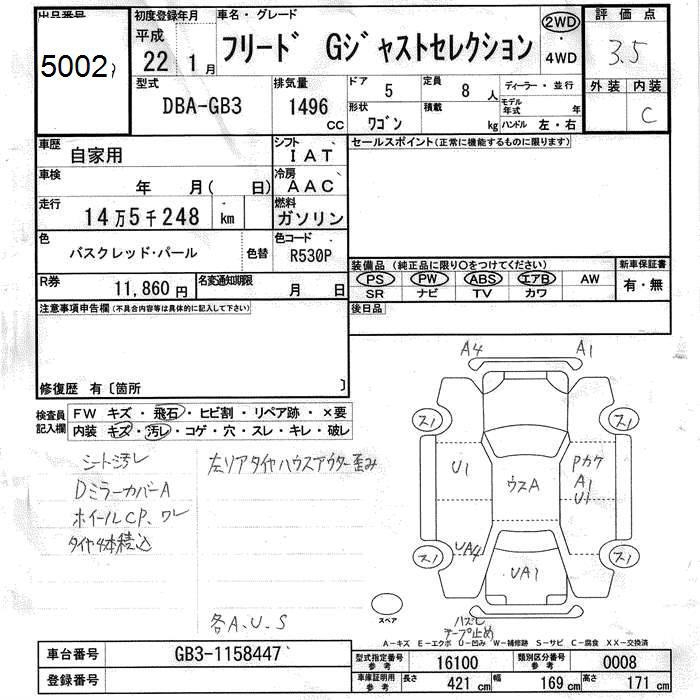 出品番号
5002
初度登録年月
平成
22 1月
車名・グレード
フリード Gジャストセレクション
2WD
・
4WD
評価点
3.5
外装 内装
C
型式
DBA-GB3
排気量
1496
CC
ドア
5
定員
8 人
形状
ワゴン
積載
kg
ディーラー・並行
モデル年式 年
ハンドル 左・右
車歴
自家用
シフト
IAT
セールスポイント(正常に機能するものに限ります)
車検
年 月( 日)
冷房
AAC
走行
14万5千248 km
燃料
ガソリン
色
バスクレッド・パール
色替
色コード
R530P
R券
11,860 円
名変通知期限
月 日
装備品(純正品に限り〇をつけてください)
PS PW ABS エアB AW
SR ナビ TV カワ
新車保証書
有・無
注意事項申告欄(不具合内容等は具体的に記入して下さい)
後日品
修復歴 有〔箇所 〕
検査員記入欄
FW キズ・飛石・ヒビ割・リペア跡・×要
内装 キズ・汚レ・コゲ・穴・スレ・キレ・破レ
シート汚レ
DミラーカバーA
ホイールCP、ワレ
タイヤ4本積込
左リアタイヤハウスアウター歪み
各A、U、S
A4 A1
スノ スノ
U1
ウスA
Pカケ
A1
U1
UA4
スノ スノ
UA1
スペア
ハズレ
テープ止め
A-キズ E-エクボ U-凹み W-補修跡 S-サビ C-腐食 XX-交換済
車台番号 GB3-1158447
登録番号
型式指定番号 参考 16100
類別区分番号 参考 0008
車庫証明用 参考 長さ 421 cm 幅 169 cm 高さ 171 cm